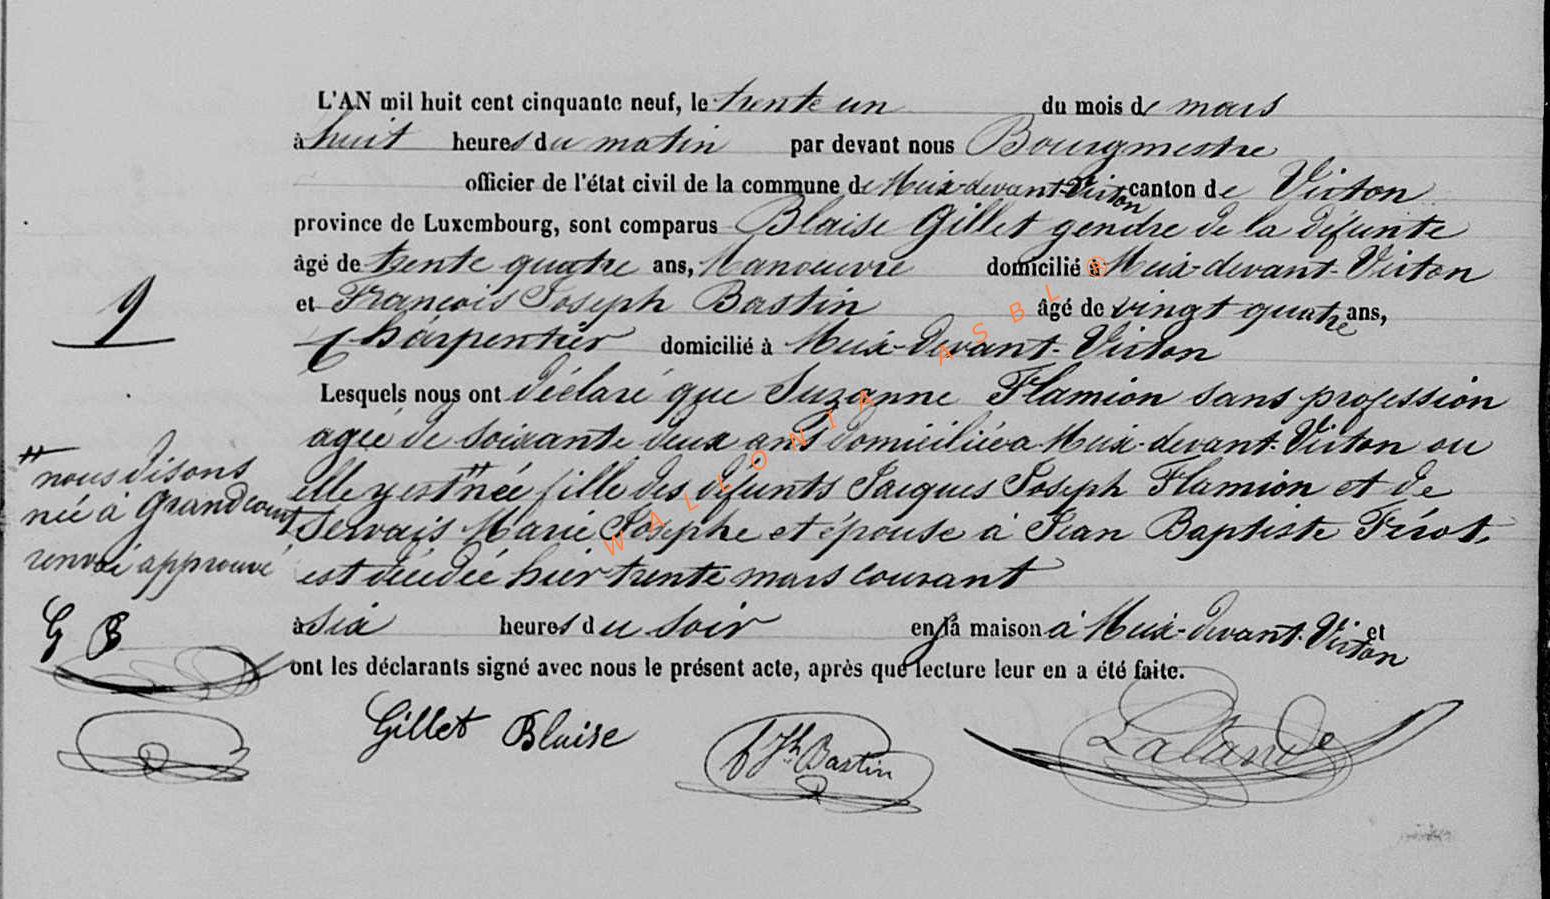 L'AN mil huit cent cinquante neuf, le trente un du mois de mars
à huit heures du matin par devant nous Bourgmestre
officier de l'état civil de la commune de Meix-devant-Virton canton de Virton
province de Luxembourg, sont comparus Blaise Gillet gendre de la défunte
âgé de trente quatre ans, Manoeuvre domicilié à Meix-devant-Virton
et François Joseph Bastin âgé de vingt quatre ans,
9
Charpentier domicilié à Meix-devant-Virton
Lesquels nous ont déclaré que Suzanne Flamion sans profession
agée de soixante deux ans domiciliée a Meix-devant-Virton ou
elle y est née fille des défunts Jacques Joseph Flamion et de
Servais Marie Josephe et épouse à Jean Baptiste Férot,
est décédée hier trente mars courant
à six heures du soir en la maison à Meix-devant-Virton et
ont les déclarants signé avec nous le présent acte, après que lecture leur en a été faite.
nous disons
née à Grandcourt
renvoi approuvé
G B
Gillet Blaise
f Jh Bastin
Lalande
WALLONIA ASBL ©